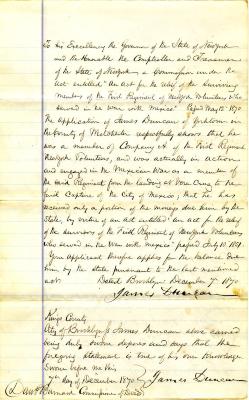 To his Excellency the Governor of the State of New York
and the Honorable the Comptroller and Treasurer
of the State of New York, a Commission under the
Act entitled "An Act for the relief of the Surviving
members of the First Regiment of New York Volunteers, who
served in the War with Mexico" Passed May 12th 1870
The application of James Duncan of Yorktown in
the County of Westchester respectfully shows that he
was a member of Company A of the First Regiment
New York Volunteers, and was actually in action
and engaged in the Mexican War as a member of
the said Regiment from the landing at Vera Cruz to the
final Capture of the City of Mexico; that he has
received only a portion of the money due him by the
State, by virtue of an act entitled An act for the relief
of the survivors of the First Regiment of New York Volunteers
who served in the War with Mexico" passed July 10. 1851.
Your applicant therefore applies for the balance due
him by the state pursuant to the last mentioned
act. Dated Brooklyn December 7. 1870
James Duncan
Kings County
City of Brooklyn SS James Duncan above named
being duly sworn deposes and says that the
foregoing statement is true of his own knowledge
Sworn before me this
7th day of December 1870 James Duncan
Barnard Commissioner of Deeds